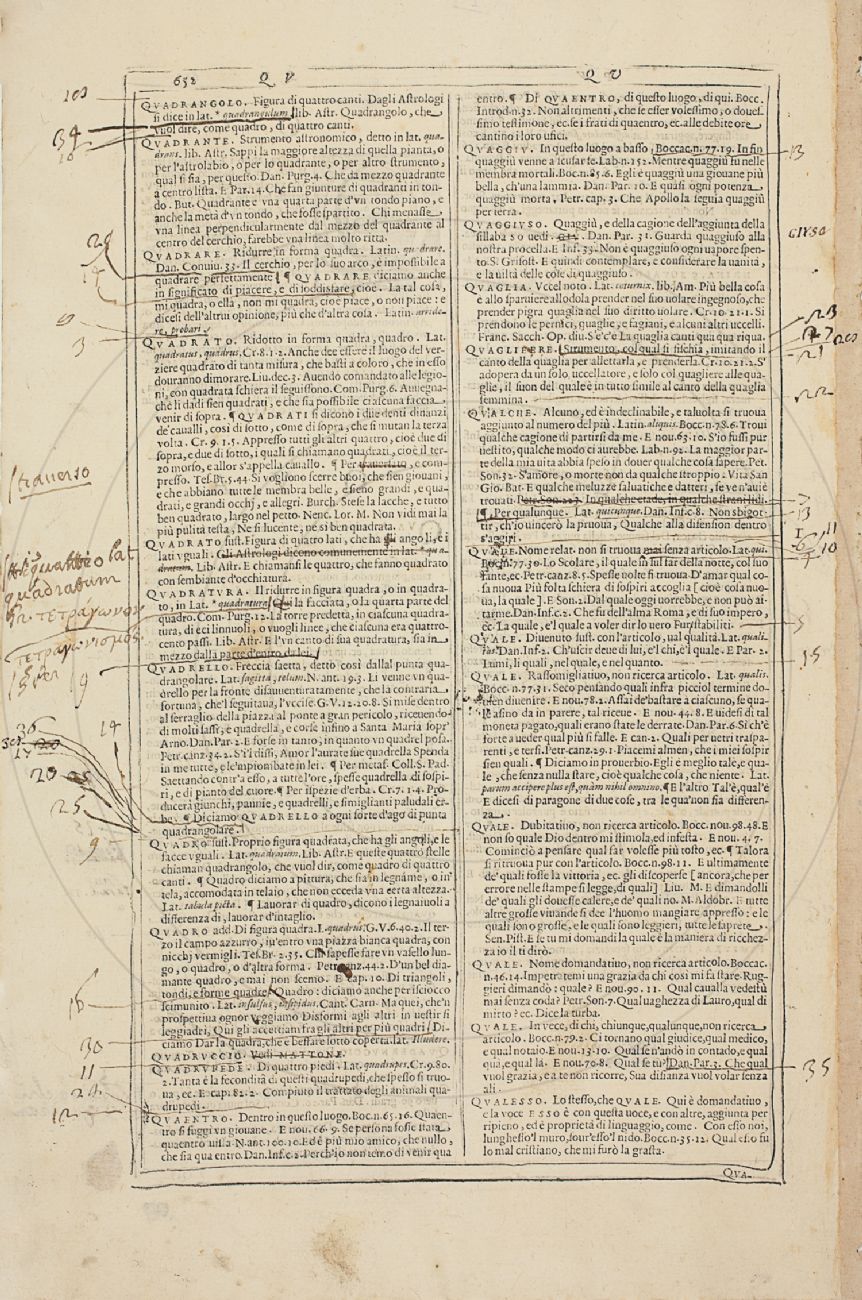 652 Q V
Q V
QVADRANGOLO. Figura di quattro canti. Dagli Aſtrologi
ſi dice in lat. * quadrangulum. lib. Aſtr. Quadrangolo, che
vuol dire, come quadro, di quattro canti.
QVADRANTE. Strumento aſtronomico, detto in lat. qua-
drans. lib. Aſtr. Sappi la maggiore altezza di quella pianta, o
per l'aſtrolabio, o per lo quadrante, o per altro ſtrumento,
qual ſi ſia, per queſto. Dan. Purg. 4. Che da mezzo quadrante
a centro liſta. E Par. 14. Che fan giunture di quadranti in ton-
do. But. Quadrante è vna quarta parte d'vn tondo piano, e
anche la metà d'vn tondo, che foſſe ſpartito. Chi menaſſe
vna linea perpendicularmente dal mezzo del quadrante al
centro del cerchio, farebbe vna linea molto ritta.
QVADRARE. Ridurre in forma quadra. Latin. quadrare.
Dan. Conuiu. 33. Il cerchio, per lo ſuo arco, è impoſſibile a
quadrare perfettamente. ¶ QVADRARE diciamo anche
in ſignificato di piacere, e di ſoddisfare, cioè. La tal coſa,
mi quadra, o ella, non mi quadra, cioè piace, o non piace: e
diceſi dell'altrui opinione, più che d'altra coſa. Latin. arride-
re, probari.
QVADRATO. Ridotto in forma quadra, quadro. Lat.
quadratus, quadrus. Cr. 8. 1. 2. Anche dee eſſere il luogo del ver-
ziere quadrato di tanta miſura, che baſti a coloro, che in eſſo
douranno dimorare. Liu. dec. 3. Auendo comandato alle legio-
ni, con quadrata ſchiera il ſeguiſſono. Com. Purg. 6. Auuegna-
chè li dadi ſien quadrati, e che ſia poſſibile ciaſcuna faccia
venir di ſopra. ¶ QVADRATI ſi dicono i due denti dinanzi
de' caualli, così di ſotto, come di ſopra, che ſi mutan la terza
volta. Cr. 9. 1. 5. Appreſſo tutti gli altri quattro, cioè due di
ſopra, e due di ſotto, i quali ſi chiamano quadrati, cioè il ter-
zo morſo, e allor s'appella cauallo. ¶ Per quartato, e com-
preſſo. Teſ. Br. 5. 44. Si vogliono ſcerre buoi, che ſien giouani,
e che abbiano tutte le membra belle, e ſieno grandi, e qua-
drati, e grandi occhj, e allegri. Burch. Steſe la lacche, e tutto
ben quadrato, largo nel petto. Nenc. Lor. M. Non vidi mai la
più pulita teſta, Ne sì lucente, ne sì ben quadrata.
QVADRATO ſuſt. Figura di quattro lati, che ha gli angoli, e i
lati vguali. Gli Aſtrologi dicono comunemente in lat. * qua-
dratum. Lib. Aſtr. E chiamanſi le quattro, che fanno quadrato
con ſembiante d'occhiatura.
QVADRATVRA. Il ridurre in figura quadra, o in quadra-
to, in Lat. * quadratura. Qui la facciata, o la quarta parte del
quadro. Com. Purg. 12. La torre predetta, in ciaſcuna quadra-
tura, di éci linnuoli, o vuogli linee, che ciaſcuna era quattro-
cento paſſi. Lib. Aſtr. E l'vn canto di ſua quadratura, ſia in
mezzo dalla parte d'entro da lei.
QVADRELLO. Freccia ſaetta, detto così dalla punta qua-
drangolare. Lat. ſagitta, telum. N. ant. 19. 3. Li venne vn qua-
drello per la fronte diſauuenturatamente, che la contraria
fortuna, che 'l ſeguitaua, l'vcciſe. G. V. 12. 20. 8. Si miſe dentro
al ſerraglio della piazza al ponte a gran pericolo, riceuendo
di molti ſaſſi, e quadrella, e corſe inſino a Santa Maria ſopr'
Arno. Dan. Par. 2. E forſe in tanto, in quanto vn quadrel poſa.
Petr. canz. 34. 2. S'i 'l diſſi, Amor l'aurate ſue quadrella Spenda
in me tutte, e le 'mpiombate in lei. ¶ Per metaf. Coll. S. Pad.
Saettando contr' a eſſo, a tutte l'ore, ſpeſſe quadrella di ſoſpi-
ri, e di pianto del cuore. ¶ Per iſpezie d'erba. Cr. 7. 1. 4. Pro-
ducerà giunchi, pannie, e quadrelli, e ſimiglianti paludali er-
be. ¶ Diciamo QVADRELLO a ogni ſorte d'ago di punta
quadrangolare.
QVADRO ſuſt. Proprio figura quadrata, che ha gli angoli, e le
facce vguali. Lat. quadratum. Lib. Aſtr. E queſte quattro ſtelle
chiaman quadrangolo, che vuol dir, come quadro di quattro
canti. ¶ Quadro diciamo a pittura, che ſia in legname, o in
tela, accomodata in telaio, che non ecceda vna certa altezza.
Lat. tabula picta. ¶ Lauorar di quadro, dicono i legnaiuoli a
differenza di, lauorar d'intaglio.
QVADRO add. Di figura quadra. L. quadrus. G. V. 6. 40. 2. Il ter-
zo il campo azzurro, iu'entro vna piazza bianca quadra, con
nicchj vermigli. Teſ. Br. 2. 35. Chi ſapeſſe fare vn vaſello lun-
go, o quadro, o d'altra forma. Petr. canz. 44. 2. D'un bel dia-
mante quadro, e mai non ſcemo. E cap. 10. Di triangoli,
tondi, e forme quadre. Quadro: diciamo anche per iſciocco
ſcimunito. Lat. inſulſus, inſipidus. Cant. Carn. Ma quei, che 'n
proſpettiua ognor veggiamo Disformi agli altri in ueſtir sì
leggiadri, Qui gli accettiam fra gli altri per più quadri. Di-
ciamo Dar la quadra, che è beffare ſotto coperta. lat. Illudere.
QVADRVCCIO. Vedi MATTONE.
QVADRVPEDE. Di quattro piedi. Lat. quadrupes. Cr. 9. 80.
2. Tanta è la fecondità di queſti quadrupedi, che ſpeſſo ſi truo-
ua, ec. E cap. 82. 2. Compiuto il trattato degli animali qua-
drupedi.
QVAENTRO. Dentro in queſto luogo. Boc. n. 65. 16. Quaen-
tro ſi fuggì vn giouane. E nou. 66. 9. Se perſona foſſe ſtata,
quaentro uiſſa. N. ant. 100. 10. Ed è più mio amico, che nullo,
che ſia qua entro. Dan. Inf. c. 2. Perch' io non temo di venir qua
entro. ¶ Di QVAENTRO, di queſto luogo, di qui. Bocc.
Introd. n. 32. Non altrimenti, che ſe eſſer voleſſimo, o doueſ-
ſimo teſtimone, ec. ſe i frati di quaentro, ec. alle debite ore
cantino i loro ufici.
QVAGGIV. In queſto luogo a baſſo, Boccac. n. 77. 19. In fin
quaggiù venne a ſcuſarſe. Lab. n. 152. Mentre quaggiù fu nelle
membra mortali. Boc. n. 85. 6. Egli è quaggiù una giouane più
bella, ch'una lammia. Dan. Par. 10. E quaſi ogni potenza
quaggiù morta. Petr. cap. 3. Che Apollo la ſeguia quaggiù
per terra.
QVAGGIVSO. Quaggiù, e della cagione dell'aggiunta della
ſillaba SO uedi. Dan. Par. 31. Guarda quaggiuſo alla
noſtra procella. E Inf. 33. Non è quaggiuſo ogni uapore ſpen-
to. S. Griſoſt. E quindi contemplare, e conſiderare la uanità,
e la uiltà delle coſe di quaggiuſo.
QVAGLIA. Vccel noto. Lat. coturnix. lib. Am. Più bella coſa
è allo ſparuiere allodola prender nel ſuo uolare ingegnoſo, che
prender pigra quaglia nel ſuo diritto uolare. Cr. 10. 21. 1. Si
prendono le pernici, quaglie, e fagiani, e alcuni altri uccelli.
Franc. Sacch. Op. diu. S'e' c'è La quaglia canti qua qua riqua.
QVAGLIERE. Strumento, col qual ſi fiſchia, imitando il
canto della quaglia per allettarla, e prenderla. Cr. 10. 21. 2. S'
adopera da un ſolo uccellatore, e ſolo col quagliere alle qua-
glie, il ſuon del quale è in tutto ſimile al canto della quaglia
femmina.
QVALCHE. Alcuno, ed è indeclinabile, e taluolta ſi truoua
aggiunto al numero del più. Latin. aliquis. Bocc. n. 78. 6. Troui
qualche cagione di partirſi da me. E nou. 63. 10. S'io fuſſi pur
ueſtito, qualche modo ci aurebbe. Lab. n. 92. La maggior par-
te della mia vita abbia ſpeſo in douer qualche coſa ſapere. Pet.
Son. 32. S'amore, o morte non da qualche ſtroppio. Vita San
Gio. Bat. E qualche meluzze ſaluatiche e datteri, ſe ve n'auiè
trouati. Petr. Son. 207. In qualche etade, in qualche ſtrani lidi.
¶ Per qualunque. Lat. quicunque. Dan. Inf. c. 8. Non sbigot-
tir, ch'io uincerò la pruoua, Qualche alla difenſion dentro
s'aggiri.
QVALE. Nome relat. non ſi truoua mai ſenza articolo. Lat. qui.
Bocc. n. 77. 30. Lo Scolare, il quale in ſul far della notte, col ſuo
fante, ec. Petr. canz. 8. 5. Speſſe notte ſi truoua. D'amar qual co-
ſa nuoua Più folta ſchiera di ſoſpiri accoglia [cioè coſa nuo-
ua, la quale]. E Son. 2. Dal quale oggi uorrebbe, e non può ai-
tarme. Dan. Inf. c. 2. Che fu dell'alma Roma, e di ſuo impero,
ec. La quale, e 'l quale a voler dir lo uero Fur ſtabiliti.
QVALE. Diuenuto ſuſt. con l'articolo, ual qualità. Lat. quali-
tas. Dan. Inf. 2. Ch'uſcir deue di lui, e 'l chi, e 'l quale. E Par. 2.
Lumi, li quali, nel quale, e nel quanto.
QVALE. Raſſomigliatiuo, non ricerca articolo. Lat. qualis.
Bocc. n. 77. 31. Seco penſando quali infra picciol termine do-
uien diuenire. E nou. 78. 2. Aſſai de' baſtare a ciaſcuno, ſe qua-
le aſino da in parere, tal riceue. E nou. 44. 8. E uideſi di tal
moneta pagato, quali erano ſtate le derrate. Dan. Par. 6. Sì ch'è
forte a ueder qual più ſi falle. E can. 2. Quali per uetri traſpa-
renti, e terſi. Petr. canz. 29. 1. Piacemi almen, che i miei ſoſpir
ſien quali. ¶ Diciamo in prouerbio. Egli è meglio tale, e qua-
le, che ſenza nulla ſtare, cioè qualche coſa, che niente. Lat.
parum accipere plus eſt, quàm nihil omnino. ¶ E l'altro Tal'è, qual'è
E diceſi di paragone di due coſe, tra le qua' non ſia differen-
za.
QVALE. Dubitatiuo, non ricerca articolo. Bocc. nou. 98. 48. E
non ſo quale Dio dentro mi ſtimola, ed infeſta. E nou. 4. 7.
Cominciò a penſare qual far voleſſe più toſto, ec. ¶ Talora
ſi ritruoua pur con l'articolo. Bocc. n. 98. 11. E ultimamente
de' quali foſſe la vittoria, ec. gli diſcoperſe [ancora, che per
errore nelle ſtampe ſi legge, di quali] Liu. M. E dimandolli
de' quali gli doueſſe calere, e de' quali no. M. Aldobr. E tutte
altre groſſe viuande ſi dee l'huomo mangiare appreſſo: e le
quali ſono groſſe, e le quali ſono leggieri, tutte le ſaprete.
Sen. Piſt. E ſe tu mi domandi la quale è la maniera di ricchez-
za io il ti dirò.
QVALE. Nome domandatiuo, non ricerca articolo. Boccac.
n. 46. 14. Impetratemi una grazia da chi così mi fa ſtare. Rug-
gieri dimandò: quale? E nou. 90. 11. Qual caualla vedeſtù
mai ſenza coda? Petr. Son. 7. Qual uaghezza di Lauro, qual di
mirto? ec. Dice la turba.
QVALE. In vece, di chi, chiunque, qualunque, non ricerca
articolo. Bocc. n. 79. 2. Ci tornano qual giudice, qual medico,
e qual notaio. E nou. 13. 10. Qual ſe n'andò in contado, e qual
qua, e qual là. E nou. 70. 8. Qual ſe tu? Dan. Par. 3. Che qual
vuol grazia, e a te non ricorre, Sua diſianza vuol volar ſenza
ali.
QVALESSO. Lo ſteſſo, che QVALE. Qui è domandatiuo,
e la voce ESSO è con queſta uoce, e con altre, aggiunta per
ripieno, ed è proprietà di linguaggio, come. Con eſſo noi,
lungheſſo 'l muro, ſour'eſſo 'l nido. Bocc. n. 35. 12. Qual eſſo fu
lo mal criſtiano, che mi furò la graſta.
QVA-
103
34
3
ſtraverso
quadratum
τετράγωνον
τετραγωνισμός
19
36
20
25
9
30
11
13
GIVSO
23
22
5
15
35